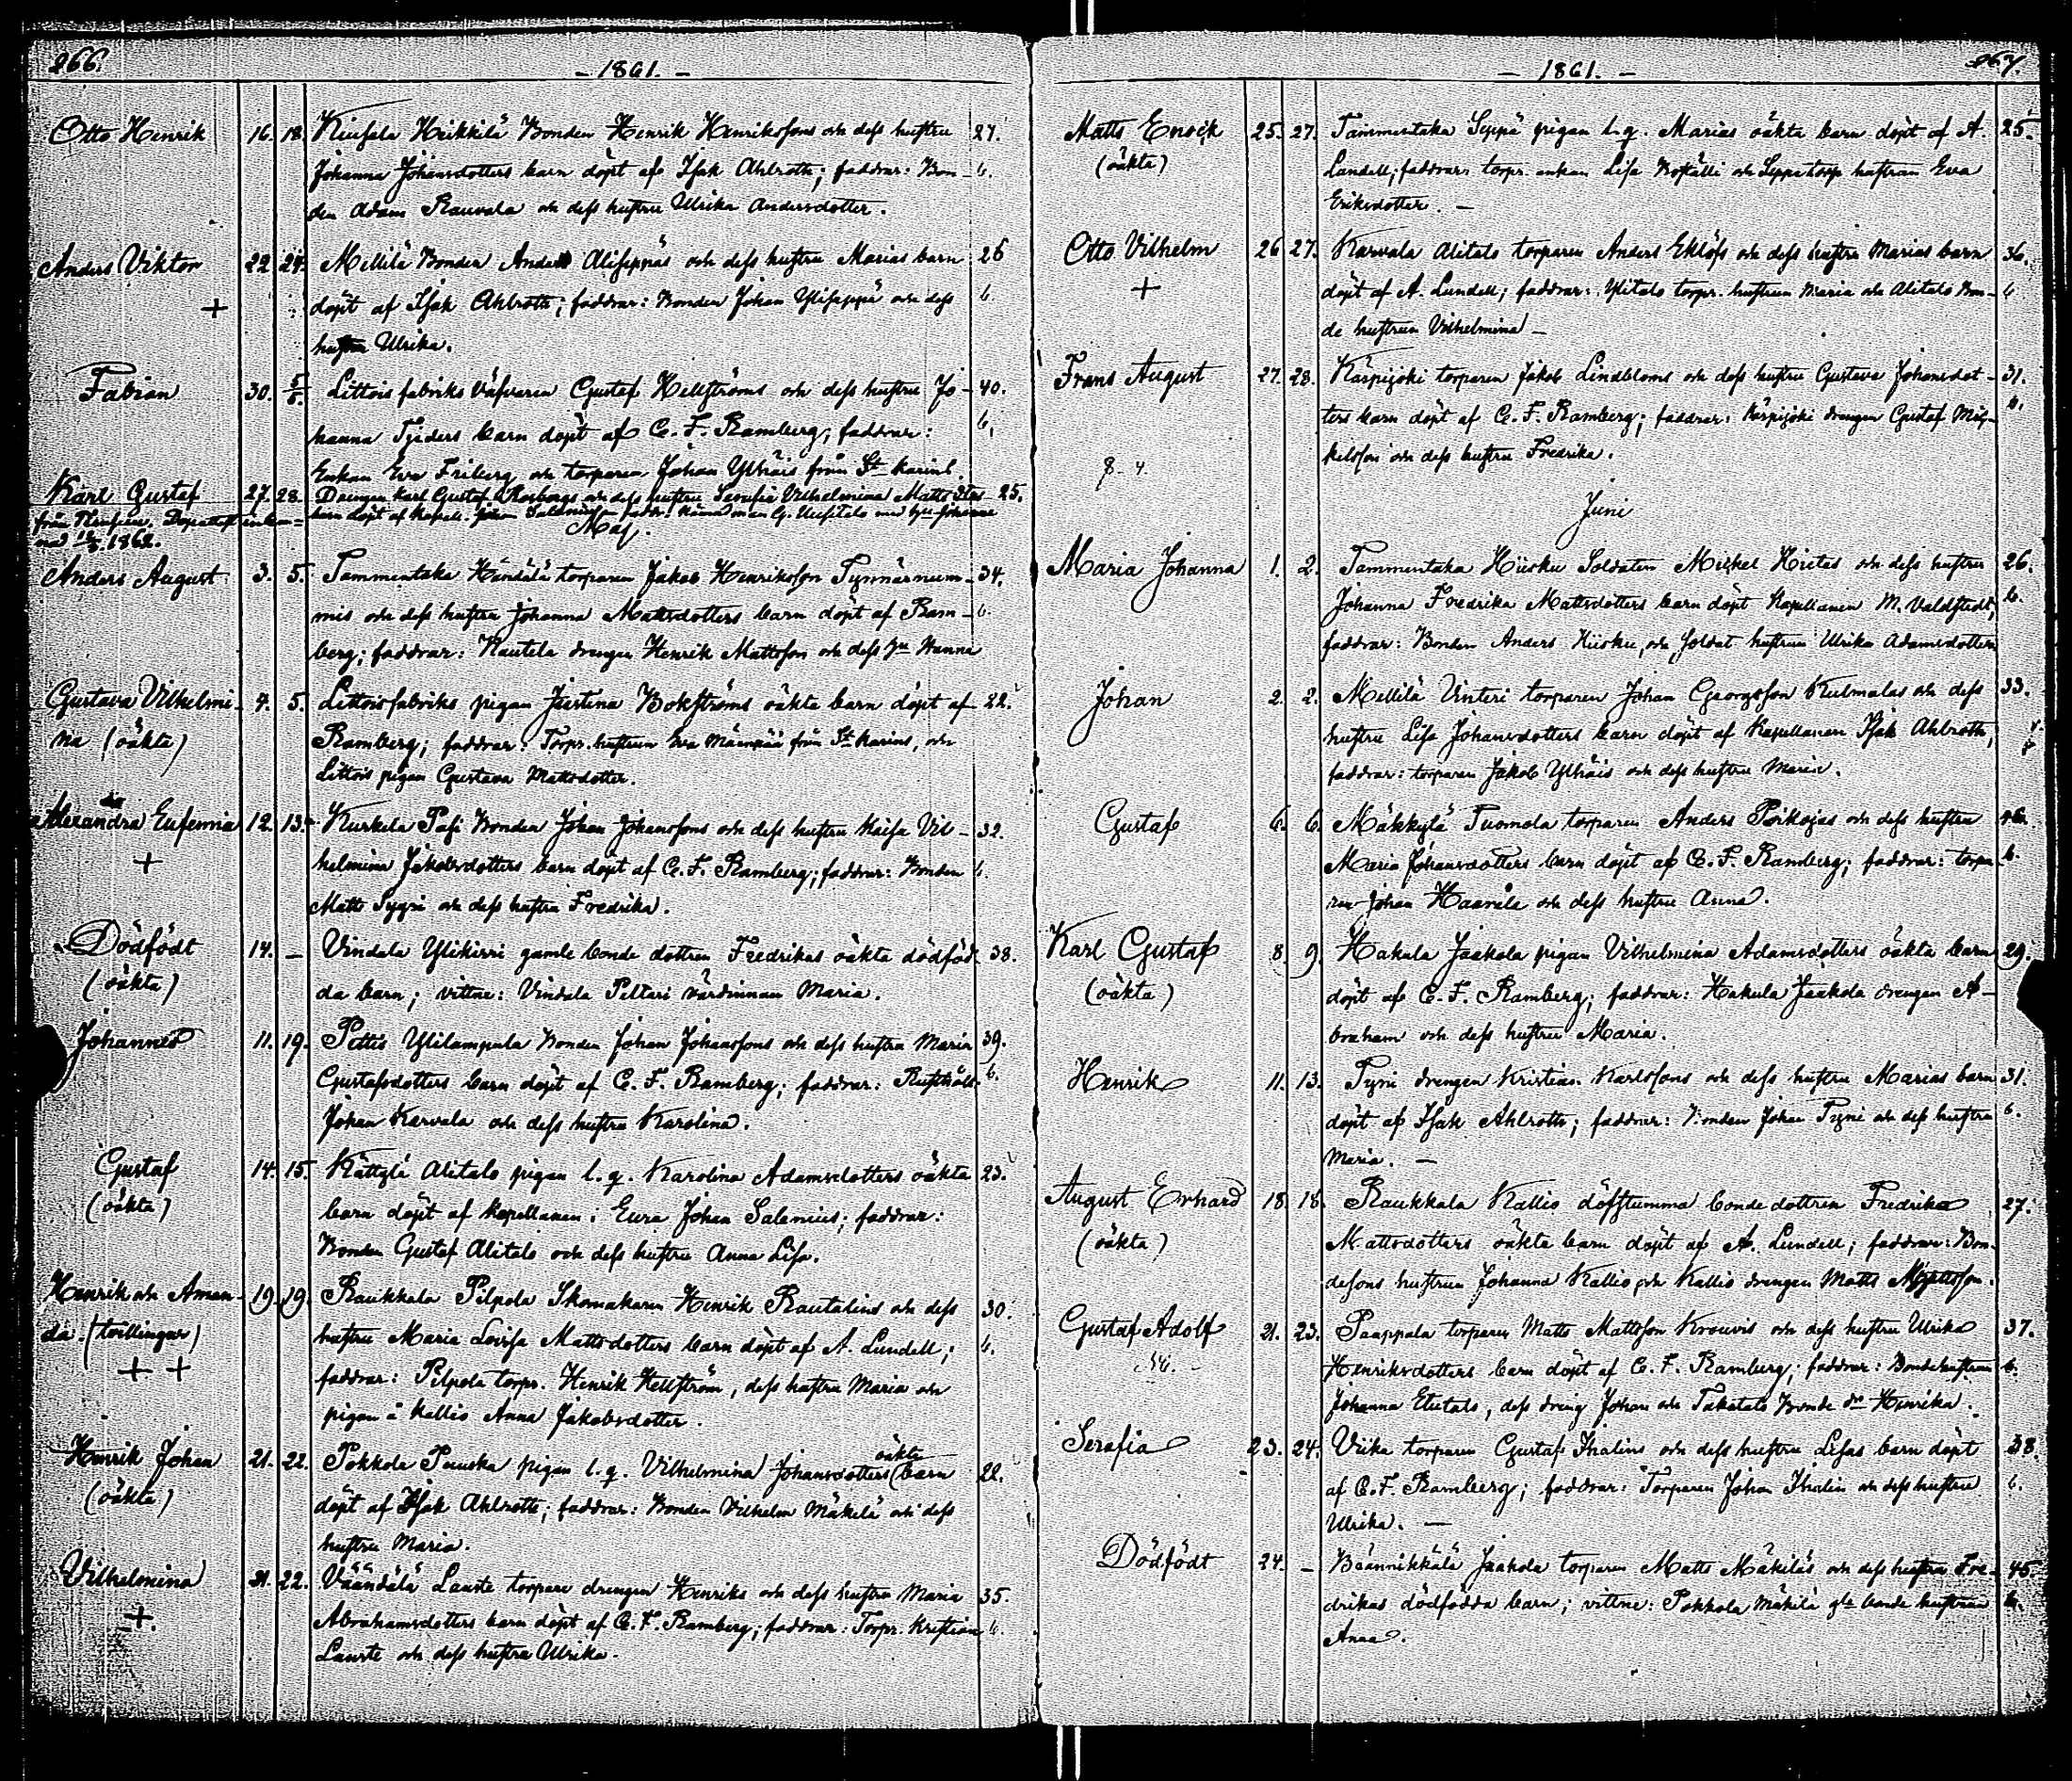 266.
- 1861. -
Otto Henrik 16. 18. Kiusala Heikkilä Bonden Henrik Henrikssons och dess hustru 27.
Johanna Johansdotters barn döpt af Isak Ahlroth; faddrar: Bon- 6.
den Adam Rauvala och dess hustru Ulrika Andersdotter.
Anders Viktor 22 24. Mellilä Bonden Anders Aliseppäs och dess hustru Marias barn 26
+ döpt af Isak Ahlroth; faddrar: Bonden Johan Yliseppä och dess 6
hustru Ulrika.
Fabian 30. 5/5. Littois fabriks väfvaren Gustaf Hellströms och dess hustru Jo- 40.
hanna Tjäders barn döpt af C. F. Ramberg; faddrar: 6.
Enkan Eva Friberg och torparen Johan Ylhäis från St Karins.
Karl Gustaf 27. 28. Drengen Karl Gustaf Rosbergs och dess hustru Serafia Vilhelmina Matts dtrs 25.
från Dopattest inkom- barn döpt af Kapell. Johan Salenius
nad 1862.
Maj.
Anders August 3. 5. Tammentaka Händälä torparen Jakob Henriksson Tynnärnum- 34.
mis och dess hustru Johanna Mattsdotters barn döpt af Ram- 6.
berg; faddrar: Nautela drengen Henrik Mattsson och dess hu Hanna
Gustava Vilhelmi- 4. 5. Littoisfabriks pigan Justina Bokströms oäkta barn döpt af 22.
na (oäkta) Ramberg; faddrar: Torpr. hustrun Eva Mäenpää från St Karins, och
Littois pigan Gustava Mattsdotter.
Alexandra Eufemia 12. 13. Kurkela Pasi Bonden Johan Johanssons och dess hustru Kaisa Vil- 32.
+ helmina Jakobsdotters barn döpt af C. F. Ramberg; faddrar: Bonden 6.
Matts Sygni och dess hustru Fredrika.
Dödfödt 14. — Vindala Ylikirri gamle bonde dottren Fredrikas oäkta dödföd- 38.
(oäkta) da barn; vittne: Vindala Peltari värdinnan Maria.
Johannes 11. 19. Pettis Ylilampula Bonden Johan Johanssons och dess hustru Maria 39.
Gustafsdotters barn döpt af C. F. Ramberg; faddrar: Rusthåll. 6.
Johan Karvala och dess hustru Karolina.
Gustaf 14. 15. Kättylä Alitalo pigan l. q. Karolina Adamsdotters oäkta 23.
(oäkta) barn döpt af Kapellanen i Eura Johan Salenius; faddrar:
Bonden Gustaf Alitalo och dess hustru Anna Lisa.
Henrik och Aman- 19. 19. Raukkala Pilpola Skomakaren Henrik Rautalins och dess 30.
da (tvillingar) hustru Maria Lovisa Mattsdotters barn döpt af A. Lundell; 6.
+ + faddrar: Pilpola torpr. Henrik Hellström, dess hustru Maria och
pigan å Kallis Anna Jakobsdotter.
Henrik Johan 21. 22. Pokkola Puuska pigan l. q. Vilhelmina Johansdotters oäkta barn 22.
(oäkta) döpt af Isak Ahlroth; faddrar: Bonden Vilhelm Mäkelä och dess
hustru Maria.
Vilhelmina 21. 22. Väändälä Lauste torpare drengen Henriks och dess hustru Maria 35.
+. Abrahamsdotters barn döpt af C. F. Ramberg; faddrar: Torpr. Kristian 6.
Lauste och dess hustru Ulrika.
267.
- 1861. -
Matts Enock 25. 27. Tammentaka Seppä pigan l. q. Marias oäkta barn döpt af A. 25.
(oäkta) Lundell; faddrar: torpr. enkan Lisa och Seppä torp hustrun Eva
Eriksdotter. —
Otto Vilhelm 26 27. Karvala Alitalo torparen Anders Eklöfs och dess hustru Marias barn 36.
+ döpt af A. Lundell; faddrar: Ylitalo torpr. hustrun Maria och Alitalo Bon- 6
de hustrun Vilhelmina —
Frans August 27. 28. Kärpijoki torparen Jakob Lindbloms och dess hustru Gustava Johansdot- 31.
ters barn döpt af C. F. Ramberg; faddrar: Kärpijoki drengen Gustaf Mic- 6.
kelsson och dess hustru Fredrika.
Juni
Maria Johanna 1. 2. Tammentaka Hiisku Soldaten Mickel Hietas och dess hustru 26.
Johanna Fredrika Mattsdotters barn döpt Kapellanen M. Valdstedt, 6.
faddrar: Bonden Anders Hiisku, och Soldat hustrun Ulrika Adamsdotter
Johan 2. 2. Mellilä Unteri torparen Johan Georgsson Kulmalas och dess 33.
hustru Lisa Johansdotters barn döpt af Kapellanen Isak Ahlroth,
faddrar: torparen Jakob Ylhäis och dess hustru Maria.
Gustaf 6. 6. Mäkkylä Tuomola torparen Anders Poikojas och dess hustru 46.
Maria Johansdotters barn döpt af C. F. Ramberg; faddrar: torpa- 6.
ren Johan Haavela och dess hustru Anna.
Karl Gustaf 8 9. Hakula Jaakola pigan Vilhelmina Adamsdotters oäkta barn 29.
(oäkta) döpt af C. F. Ramberg; faddrar: Hakula Jaakola drengen A-
braham och dess hustru Maria.
Henrik 11. 13. Tyni drengen Kristian Karlssons och dess hustru Marias barn 31.
döpt af Isak Ahlroth; faddrar: Bonden Johan Tyni och dess hustru 6.
Maria. —
August Erhard 18. 18. Raukkala Kallis döfstumma bonde dottren Fredrika 27.
(oäkta) Mattsdotters oäkta barn döpt af A. Lundell; faddrar: Bon-
desons hustrun Johanna Kallis, och Kallis drengen Matts Mattsson.
Gustaf Adolf 21. 23. Paappala torparen Matts Mattsson Krouvis och dess hustru Ulrika 37.
Henriksdotters barn döpt af C. F. Ramberg; faddrar: Bondehustrun 6.
Johanna Etutalo, dess dreng Johan och Takatalo Bonde dr Henrika.
Serafia 23. 24. Viika torparen Gustaf Ihalins och dess hustru Lisas barn döpt 38.
af C. F. Ramberg; faddrar: Torparen Johan Ihalin och dess hustru 6.
Ulrika. —
Dödfödt 24. — Väännikkälä Jaakola torparen Matts Mäkiläs och dess hustru Fre- 45.
drikas dödfödda barn; vittne: Pokkola Mäkilä gle bonde hustrun 6.
Anna.